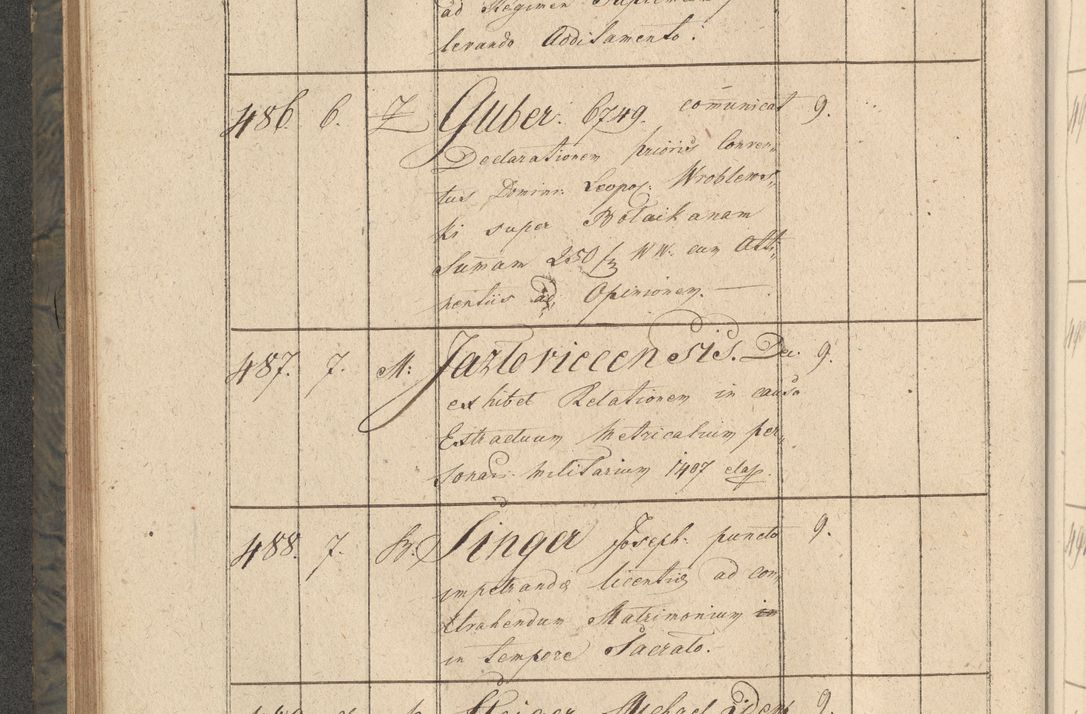 ad Regimen Supremum
levando Additamento.
486. 6. Z Guber. 6749. com̄unicat 9.
Declarationem prioris Conven„
tus Domini: Leopol: Wroblews„
ki super Bolaikanam
Sum̄am 250 f WW. cum Att„
nentiis ad Opinionem.
487. 7. M: Jazlovieccensis. Dec. 9.
exhibet Relationem in causa
Extractuum Metricalium per„
sonar: militarium 1407 elap.
488. 7. B. Singer Joseph. puncto 9.
impetrandæ licentiæ ad con„
trahendum Matrimonium in
in tempore Sacrato.
Michael 9.